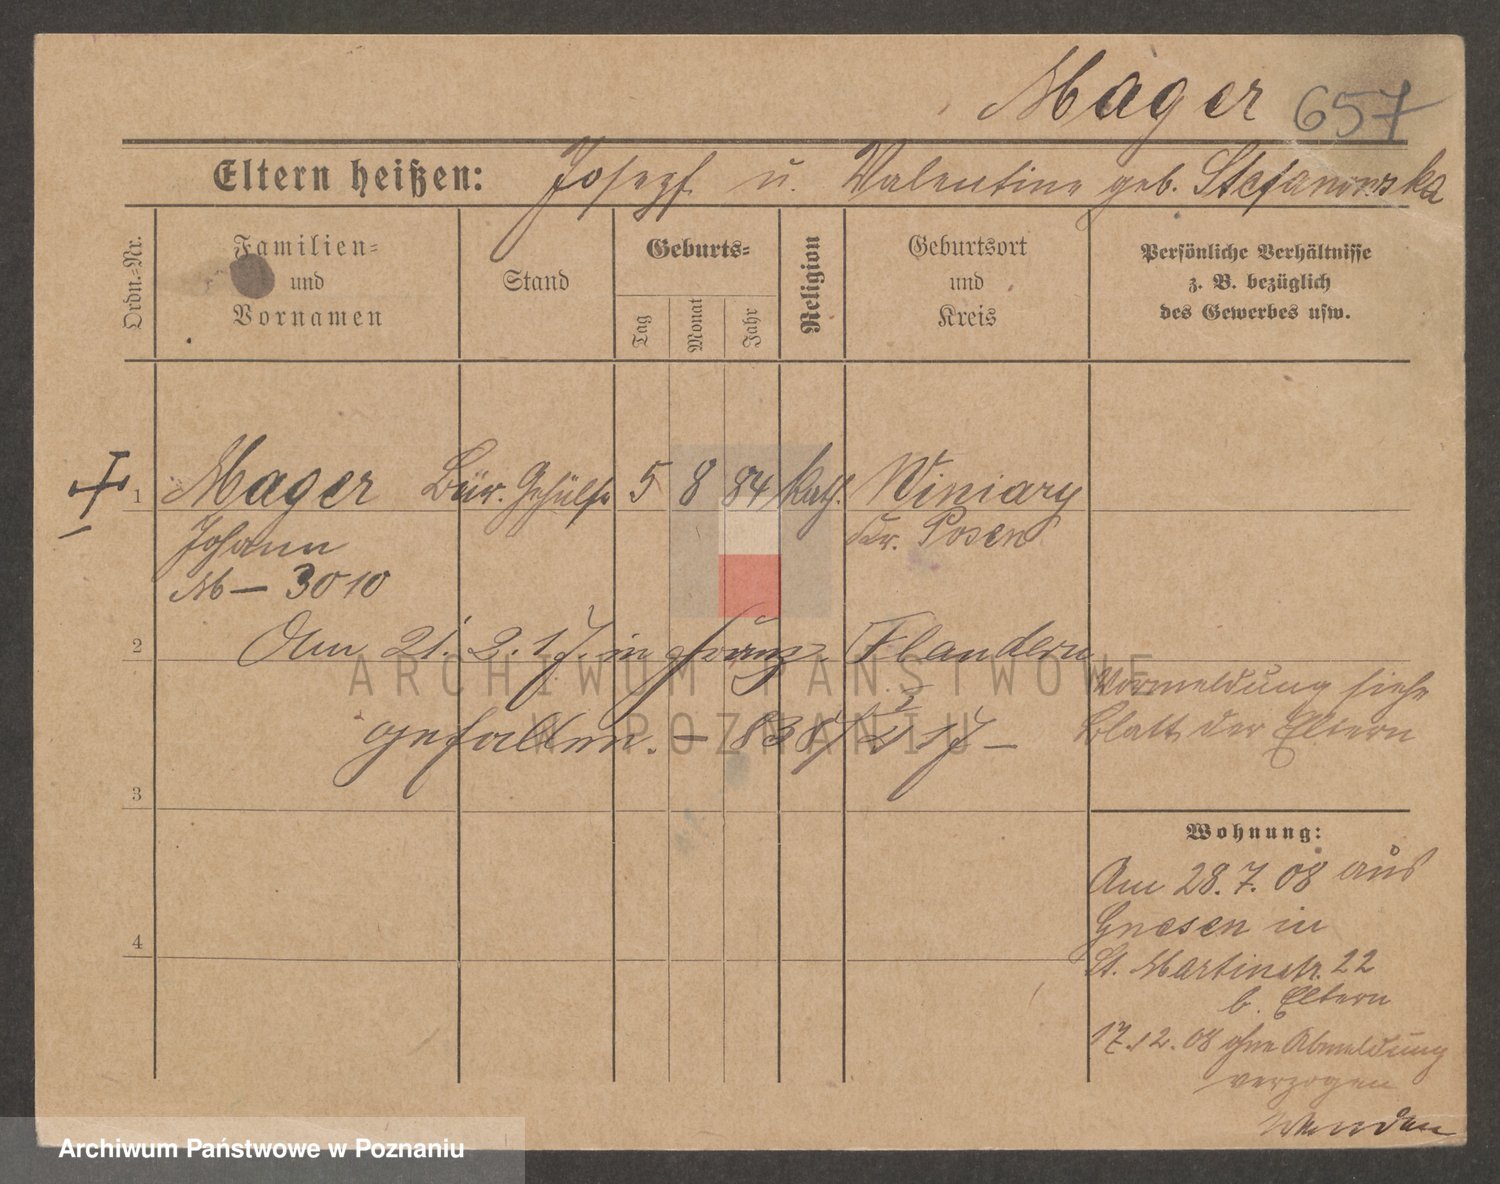 Mager 657
Eltern heißen: Josepf u. Valentine geb. Stefanowska
Ordn.-Nr.
Familien-
und
Vornamen
Stand
Geburts-
Tag
Monat
Jahr
Religion
Geburtsort
und
Kreis
Persönliche Verhältnisse
z. B. bezüglich
des Gewerbes usw.
1 Mager Bür. Gehülfe 5 8 84 kath. Winiary
Johann Kr. Posen
M – 3010
2 Am 21. 2. 17. in franz. Flandern
gefallen. – 838/2 17 –
Vormeldung siehe
Blatt der Eltern
3
Wohnung:
Am 28. 7. 08 aus
Gnesen in
St. Martinstr. 22
b. Eltern
17.12.08 ohne Abmeldung
verzogen
Wenden
4
ARCHIWUM PAŃSTWOWE
W POZNANIU
Archiwum Państwowe w Poznaniu